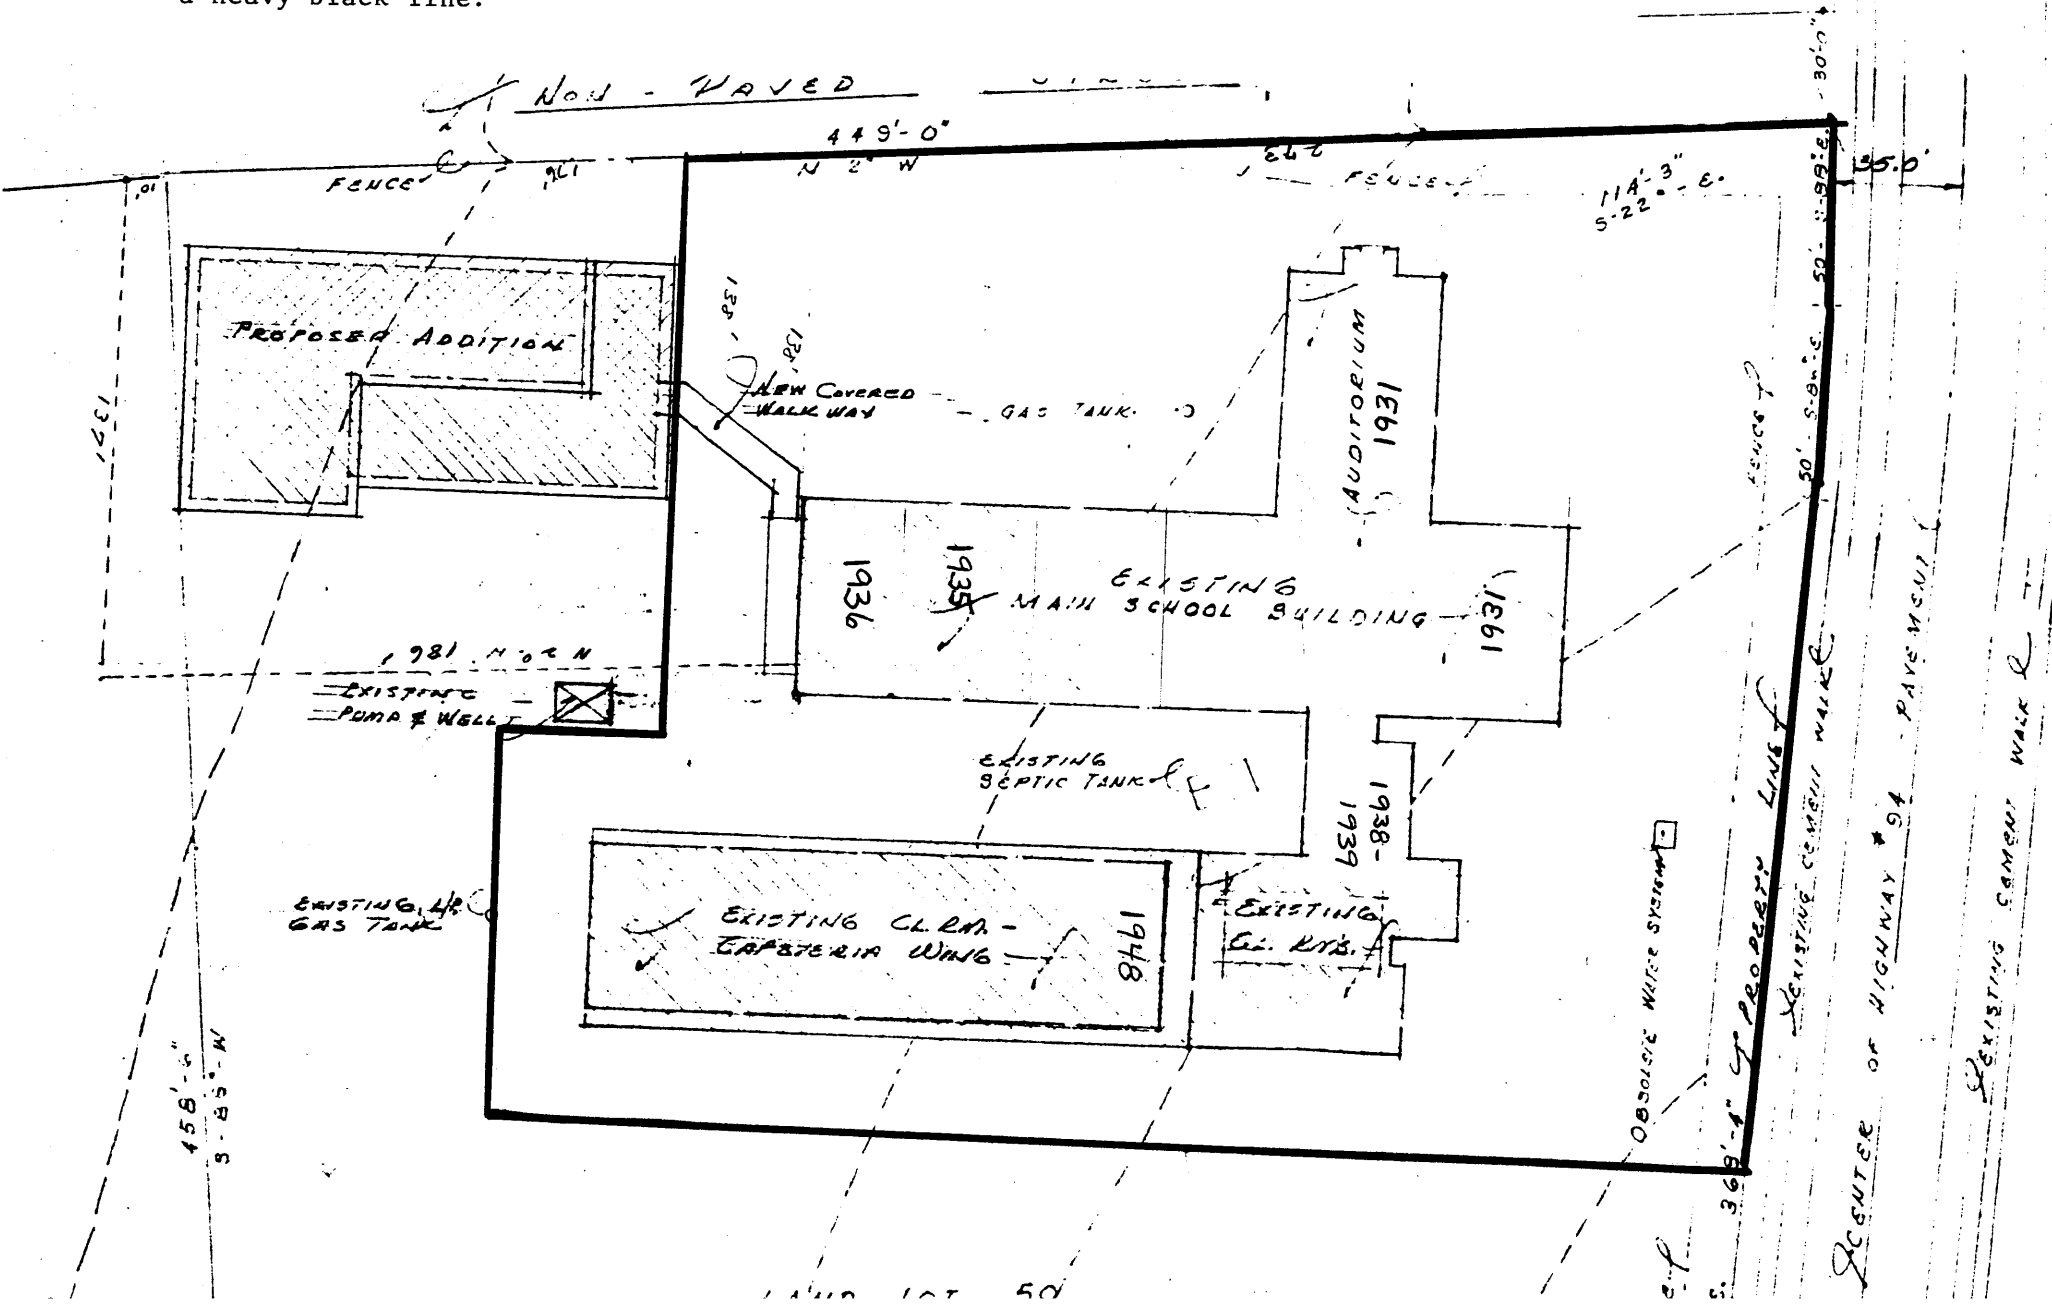 a heavy black line.
NON - PAVED
449'-0"
N 2° W
273
176'
10'
FENCE
FENCE
114'-3"
S-22°-E.
30'-0"
35.0'
50'
50'
50'
137'
PROPOSED ADDITION
138'
138'
NEW COVERED
WALK WAY
GAS TANK
AUDITORIUM
1931
FENCE
1936
1935
EXISTING
MAIN SCHOOL BUILDING
1931
N 2° W. 186'
EXISTING
PUMP & WELL
EXISTING
SEPTIC TANK
1938-
1939
EXISTING L/P
GAS TANK
EXISTING CL. RM. -
CAFETERIA WING
1948
EXISTING
CL. RMS.
OBSOLETE WATER SYSTEM
PROPERTY LINE
368'-4"
EXISTING CEMENT WALK
CENTER OF HIGHWAY # 94 PAVEMENT
EXISTING CEMENT WALK
458'-6"
S-85°-W
LAND LOT 50